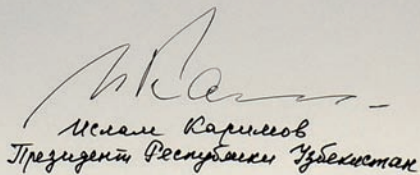 Ислам Каримов
Президент Республики Узбекистан